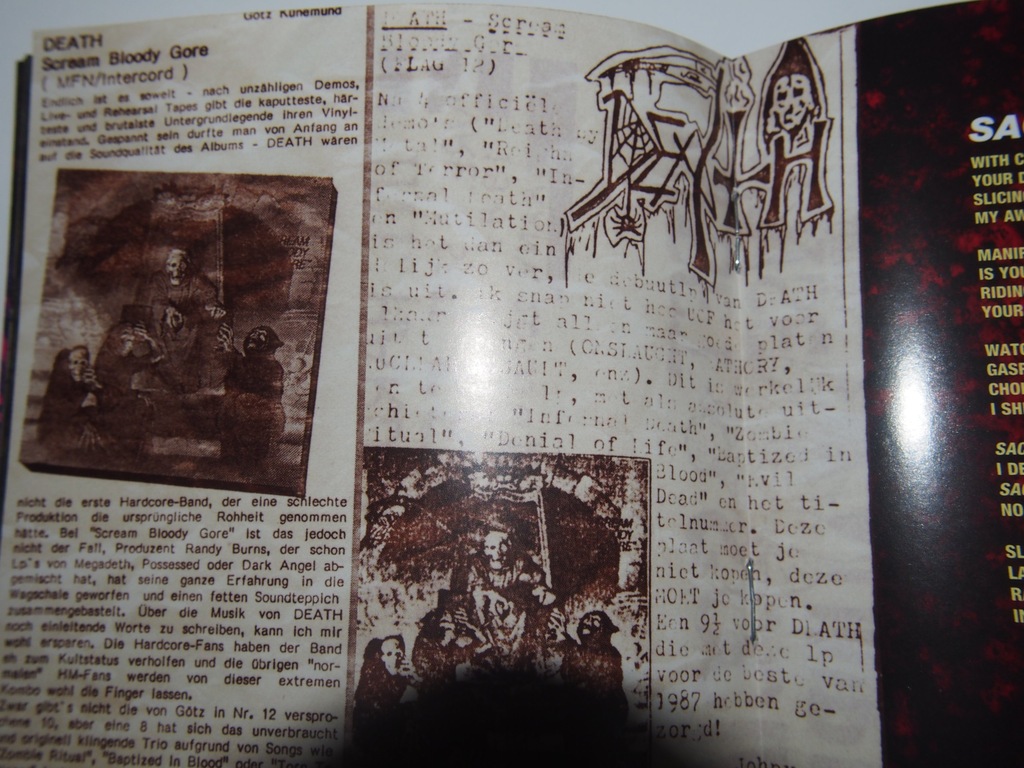 Götz Kunemund
DEATH
Scream Bloody Gore
( MFN/Intercord )
Endlich ist es soweit - nach unzähligen Demos,
Live- und Rehearsal Tapes gibt die kaputteste, här-
teste und brutalste Untergrundlegende ihren Vinyl-
einstand. Gespannt sein durfte man von Anfang an
auf die Soundqualität des Albums - DEATH wären
nicht die erste Hardcore-Band, der eine schlechte
Produktion die ursprüngliche Rohheit genommen
hätte. Bei "Scream Bloody Gore" ist das jedoch
nicht der Fall, Produzent Randy Burns, der schon
Lp's von Megadeth, Possessed oder Dark Angel ab-
gemischt hat, hat seine ganze Erfahrung in die
Wagschale geworfen und einen fetten Soundteppich
zusammengebastelt. Über die Musik von DEATH
noch einleitende Worte zu schreiben, kann ich mir
wohl ersparen. Die Hardcore-Fans haben der Band
eh zum Kultstatus verholfen und die übrigen "nor-
malen" HM-Fans werden von dieser extremen
Kombo wohl die Finger lassen.
Zwar gibt's nicht die von Götz in Nr. 12 verspro-
chene 10, aber eine 8 hat sich das unverbraucht
und originell klingende Trio aufgrund von Songs wie
"Zombie Ritual", "Baptized In Blood" oder "Torn
DEATH - Scream
Bloody Gore
(FLAG 12)
DEATH
Na 4 officiële
demo's ("Death by
Metal", "Reign
of Terror", "In-
fernal Death"
en "Mutilation)
is het dan ein
delijk zo ver, de debuutlp van DEATH
is uit. Ik snap niet hoe UCF het voor
elkaar krijgt alleen maar goede platen
uit te brengen (ONSLAUGHT, BATHORY,
NUCLEAR ASSAULT, enz). Dit is werkelijk
lp, met als absolute uit-
schieters "Infernal Death", "Zombie
Ritual", "Denial of Life", "Baptized in
Blood", "Evil
Dead" en het ti-
telnummer. Deze
plaat moet je
niet kopen, deze
MOET je kopen.
Een 9½ voor DEATH
die met deze lp
voor de beste van
1987 hebben ge-
zorgd!
Johny
SA
WITH C
YOUR D
SLICING
MY AW
MANIF
IS YOU
RIDING
YOUR
WATC
GASP
CHO
I SH
SAC
I DE
SA
NO
SL
LA
R
I